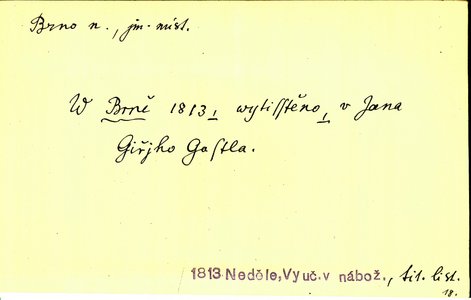 Brno n., jm. míst.
W Brně 1813, wytisstěno, v Jana
Giřjho Gastla.
1813 Neděle, Vyuč. v nábož., tit. list.
18.